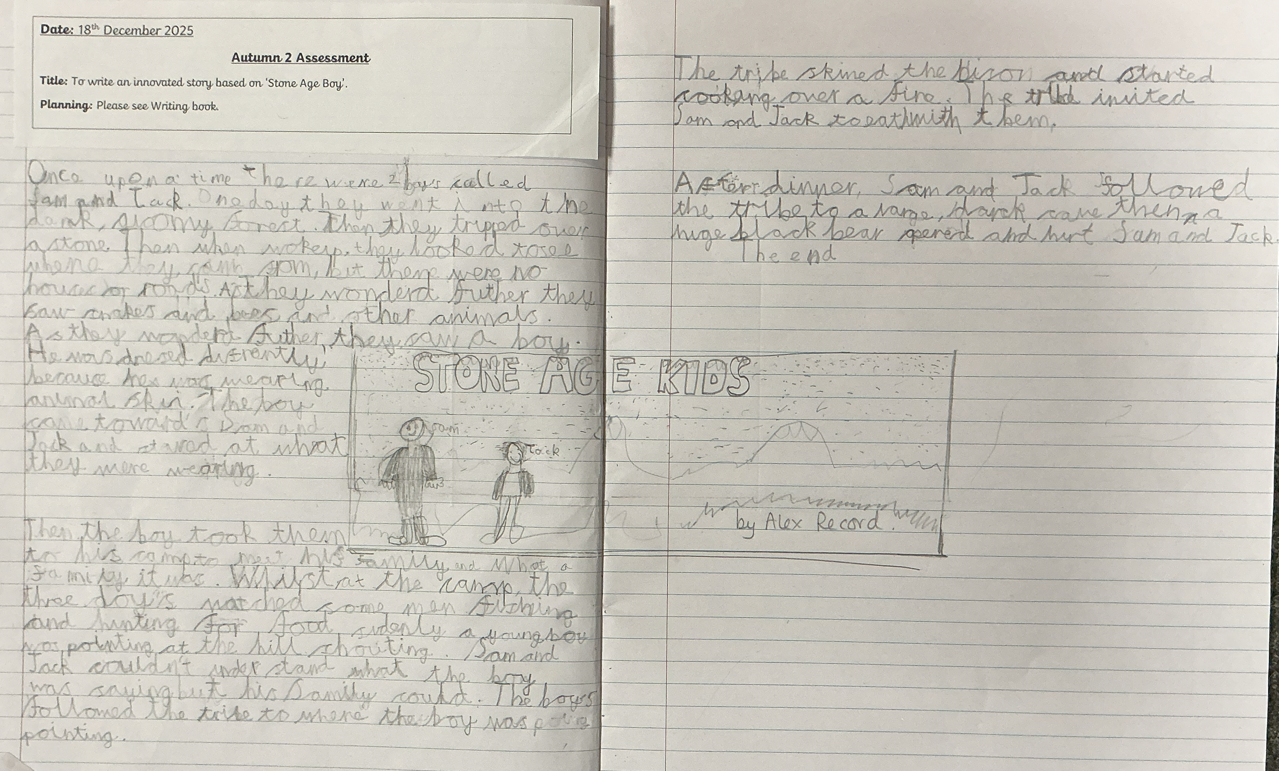 Date: 18th December 2025
Autumn 2 Assessment
Title: To write an innovated story based on 'Stone Age Boy'.
Planning: Please see Writing book.
Once upon a time there were 2 boys called
Sam and Jack. One day they went into the
dark, gloomy forest. Then they tripped over
a stone. Then when wokeup they looked to see
where they, but there were no
houses or roads. As they wonderd futher they
saw snakes and bees and other animals.
As they wonderd futher, they saw a boy.
He was dresed difrently,
because he was wearing
animal skin. The boy
came towards Sam and
Jack and stared at what
they were wearing.
Then the boy took them
to his camp to meet his family and what a
family it was. Whilst at the camp, the
three boy's watched some men fishing
and hunting for food sudenly a young boy
was pointing at the hill shouting. Sam and
Jack couldn't under stand what the boy
was saying but his family could. The boys
followed the tribe to where the boy was
pointing.
STONE AGE KIDS
Sam
Jack
by Alex Record.
The tribe skined the bison and started
cooking over a fire. The invited
Sam and Jack to eat with them.
After dinner, Sam and Jack followed
the tribe to a large, dark cave then a
huge black bear apered and hurt Sam and Jack.
The end